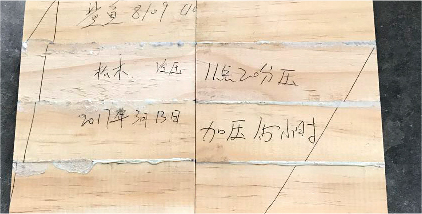 鲨鱼 8109
松木 冷压 11点20分压
2017年3月13日 加压1.5小时